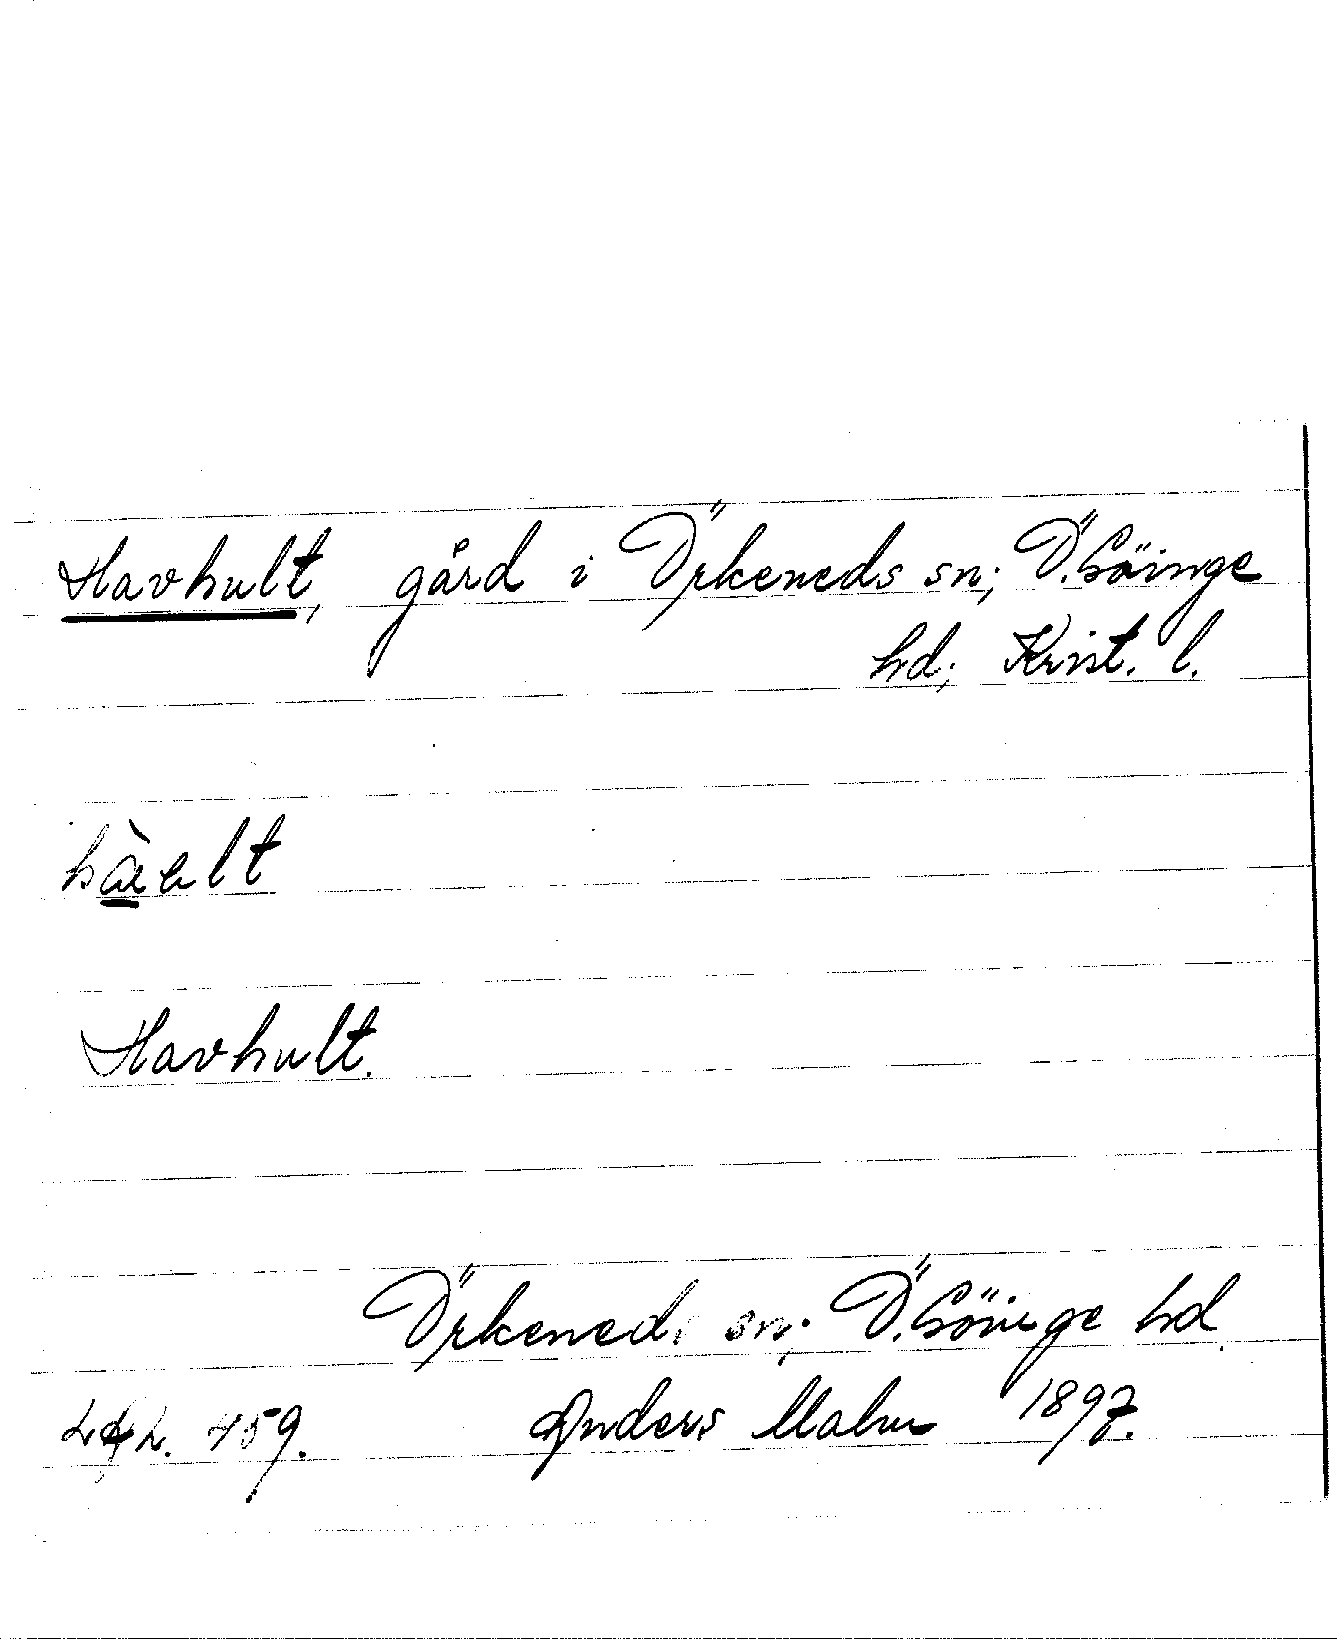 Havhult, gård i Örkeneds sn; Ö. Göinge
hd; Krist. l.
Havhult.
Örkeneds sn; Ö. Göinge hd
459. Anders Malm 1897.